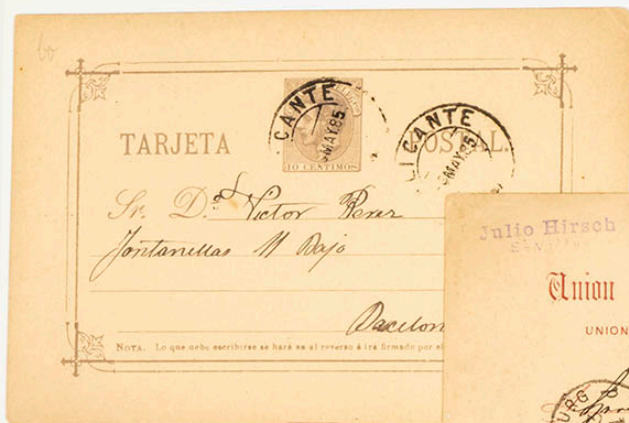 TARJETA POSTAL
10 CENTIMOS
CANTE
MAY 85
LICANTE
MAY 85
Sr. D. Victor Perez
Fontanellas 11 Bajo
Barcelon
NOTA. Lo que debe escribirse se hará en el reverso é irá firmado por el
Julio Hirsch
Sevilla
Union
UNION
URG